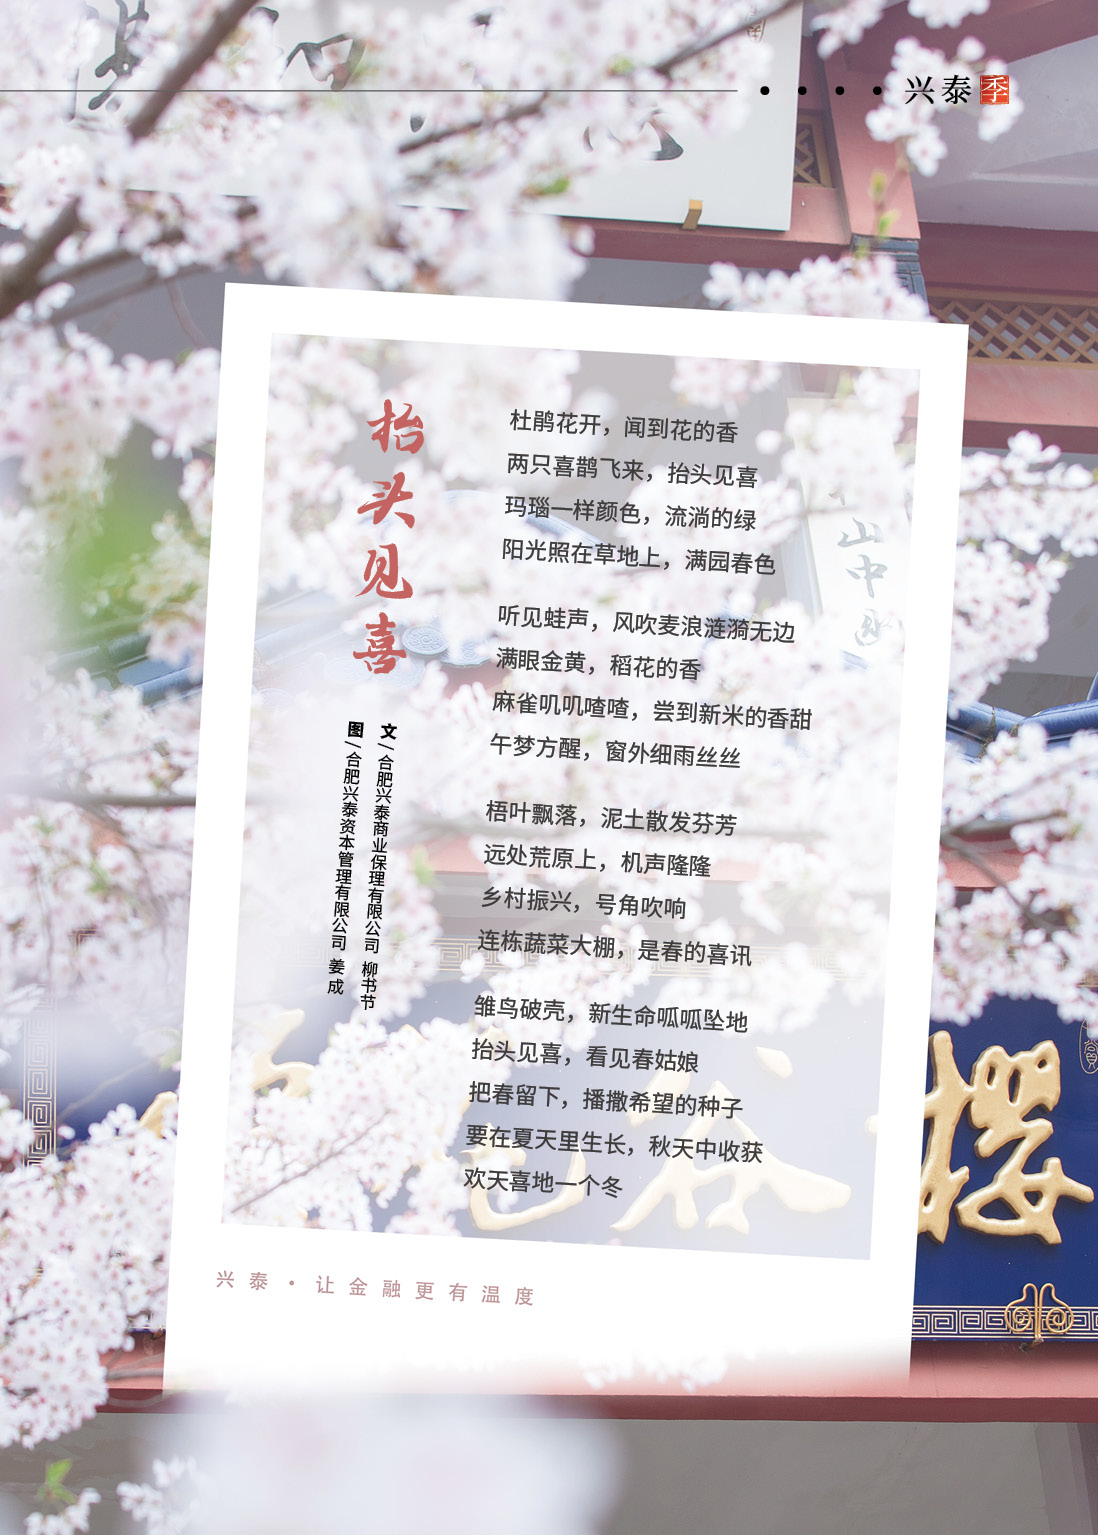 兴泰季
抬头见喜
文/合肥兴泰商业保理有限公司 柳书节
图/合肥兴泰资本管理有限公司 姜成
杜鹃花开，闻到花的香
两只喜鹊飞来，抬头见喜
玛瑙一样颜色，流淌的绿
阳光照在草地上，满园春色
听见蛙声，风吹麦浪涟漪无边
满眼金黄，稻花的香
麻雀叽叽喳喳，尝到新米的香甜
午梦方醒，窗外细雨丝丝
梧叶飘落，泥土散发芬芳
远处荒原上，机声隆隆
乡村振兴，号角吹响
连栋蔬菜大棚，是春的喜讯
雏鸟破壳，新生命呱呱坠地
抬头见喜，看见春姑娘
把春留下，播撒希望的种子
要在夏天里生长，秋天中收获
欢天喜地一个冬
山中
樱
兴泰·让金融更有温度